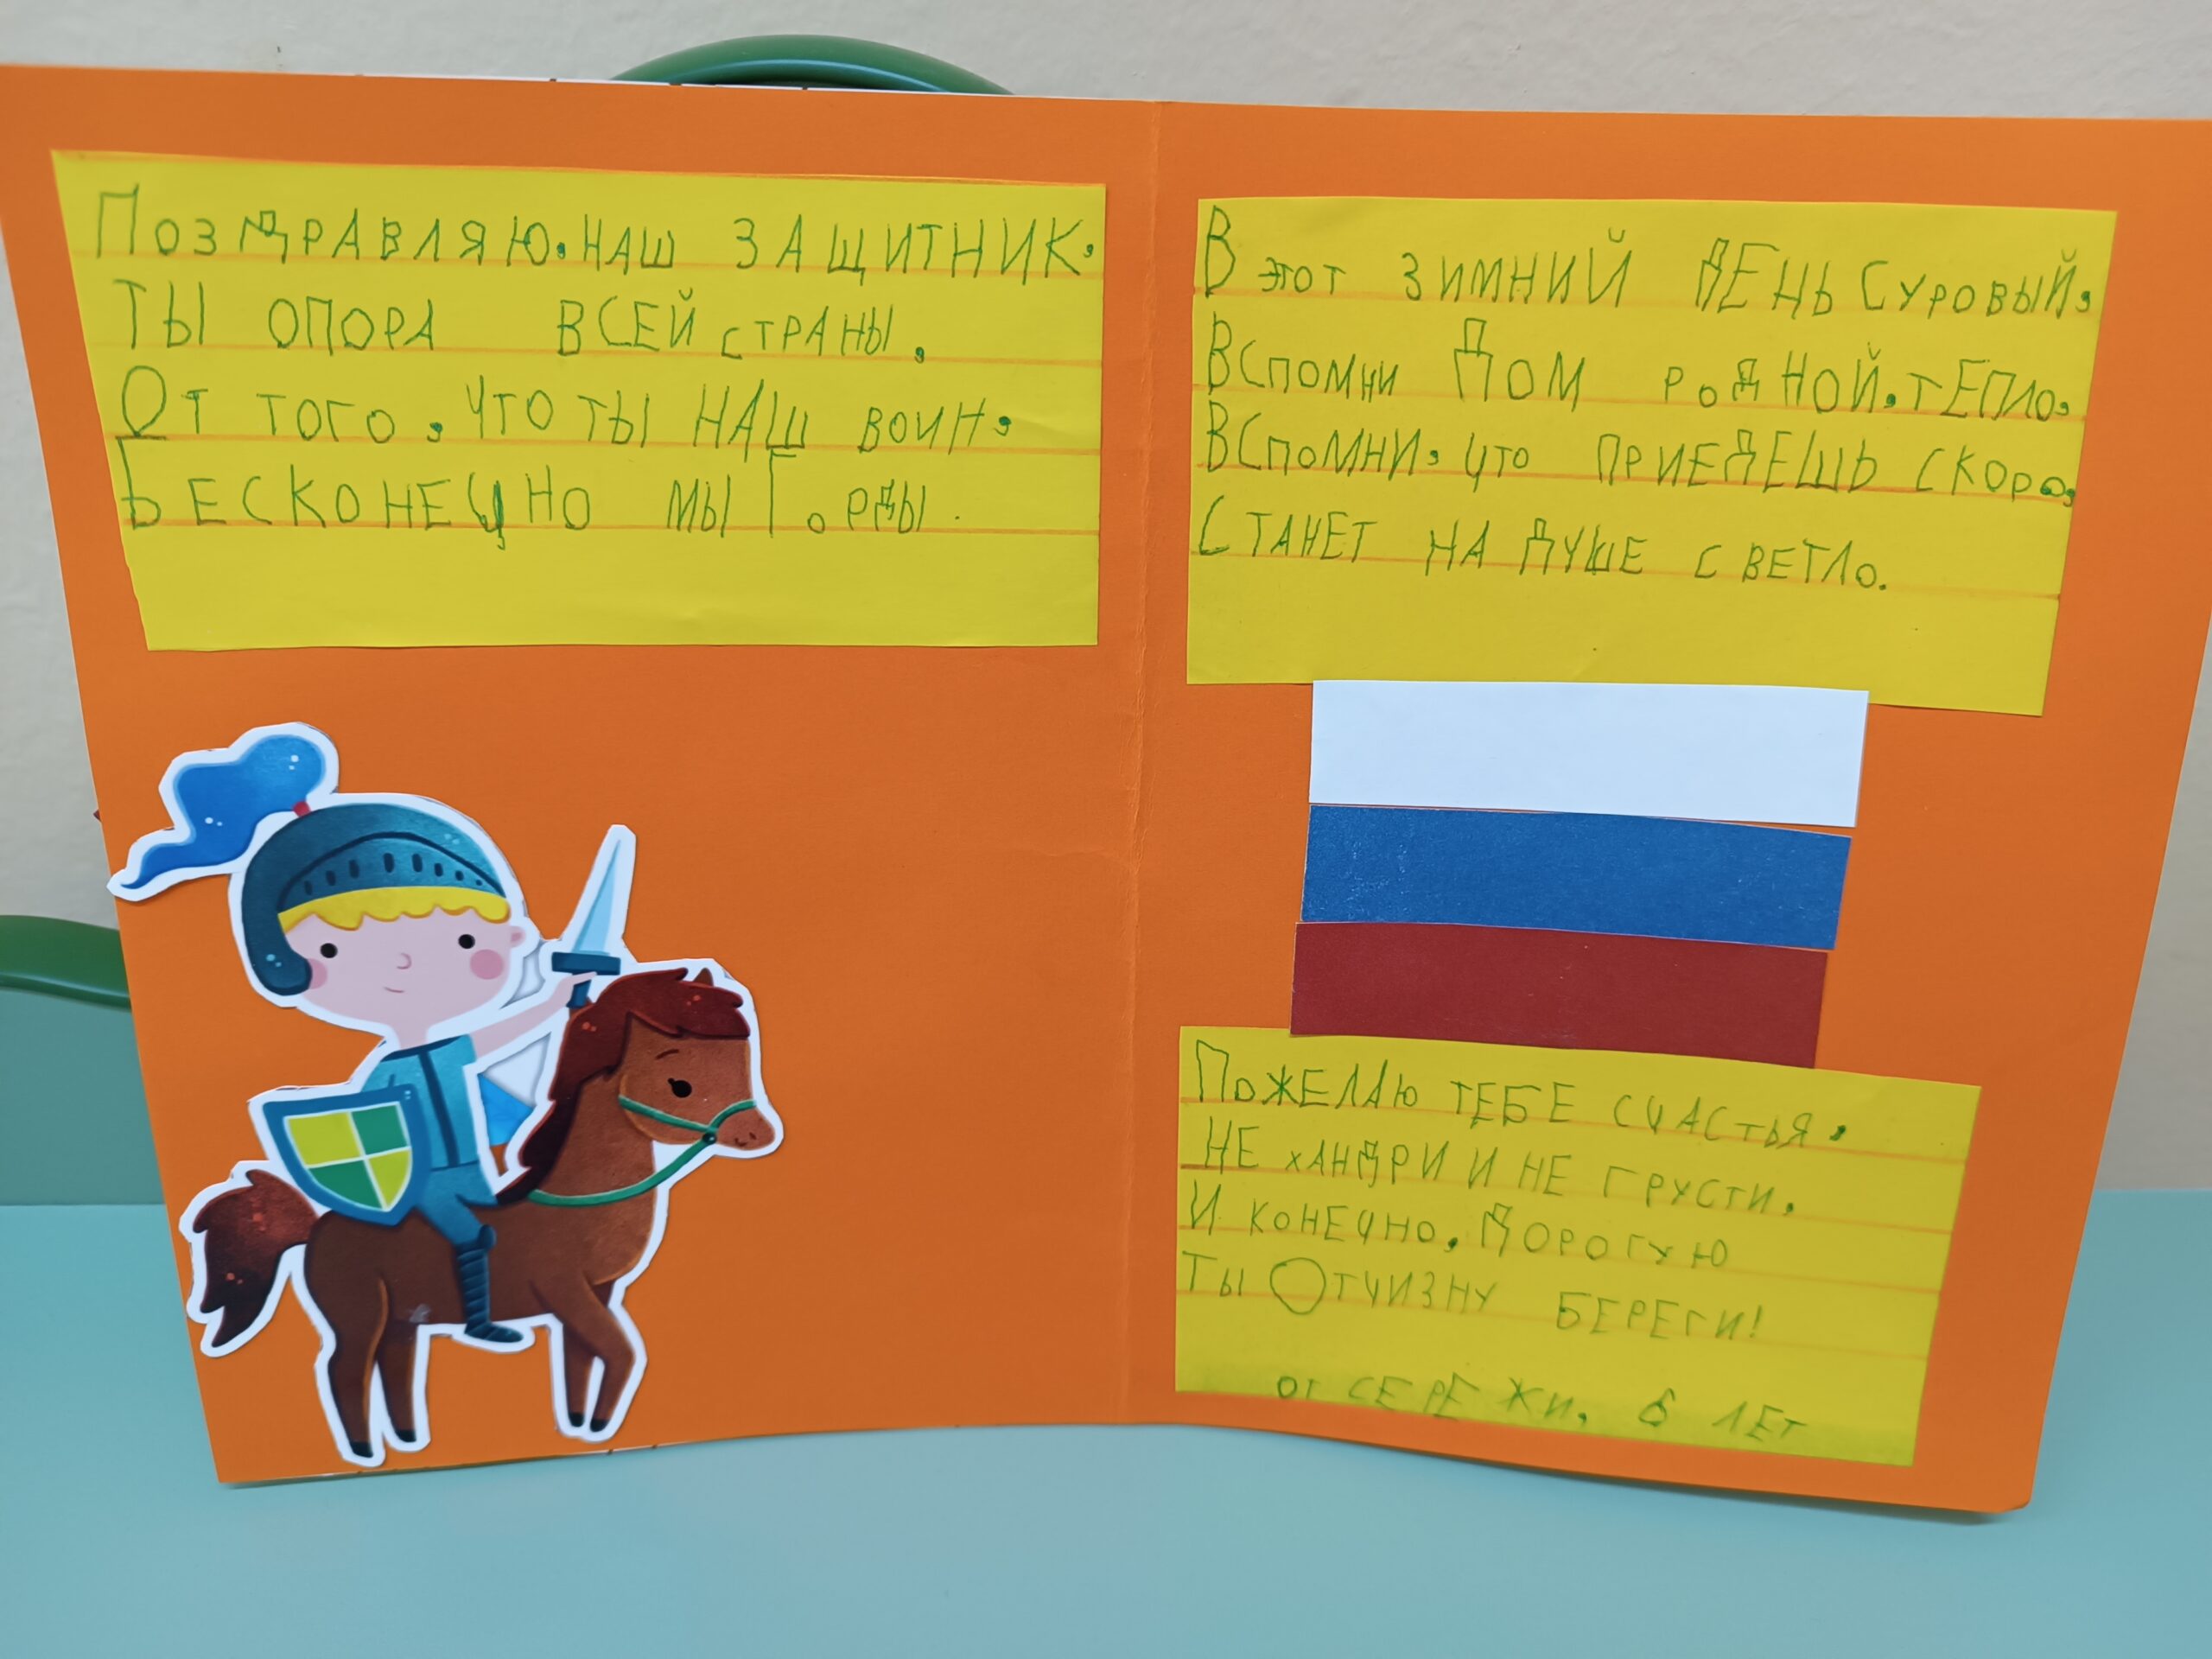 Поздравляю, наш защитник,
Ты опора всей страны,
От того, что ты наш воин,
Бесконечно мы Горды.
В этот зимний день суровый,
Вспомни Дом родной, тепло,
Вспомни, что приедешь скоро,
Станет на душе светло.
Пожелаю тебе счастья,
Не хандри и не грусти,
И конечно, дорогую
Ты Отчизну береги!
от СЕРЕЖИ, 6 ЛЕТ